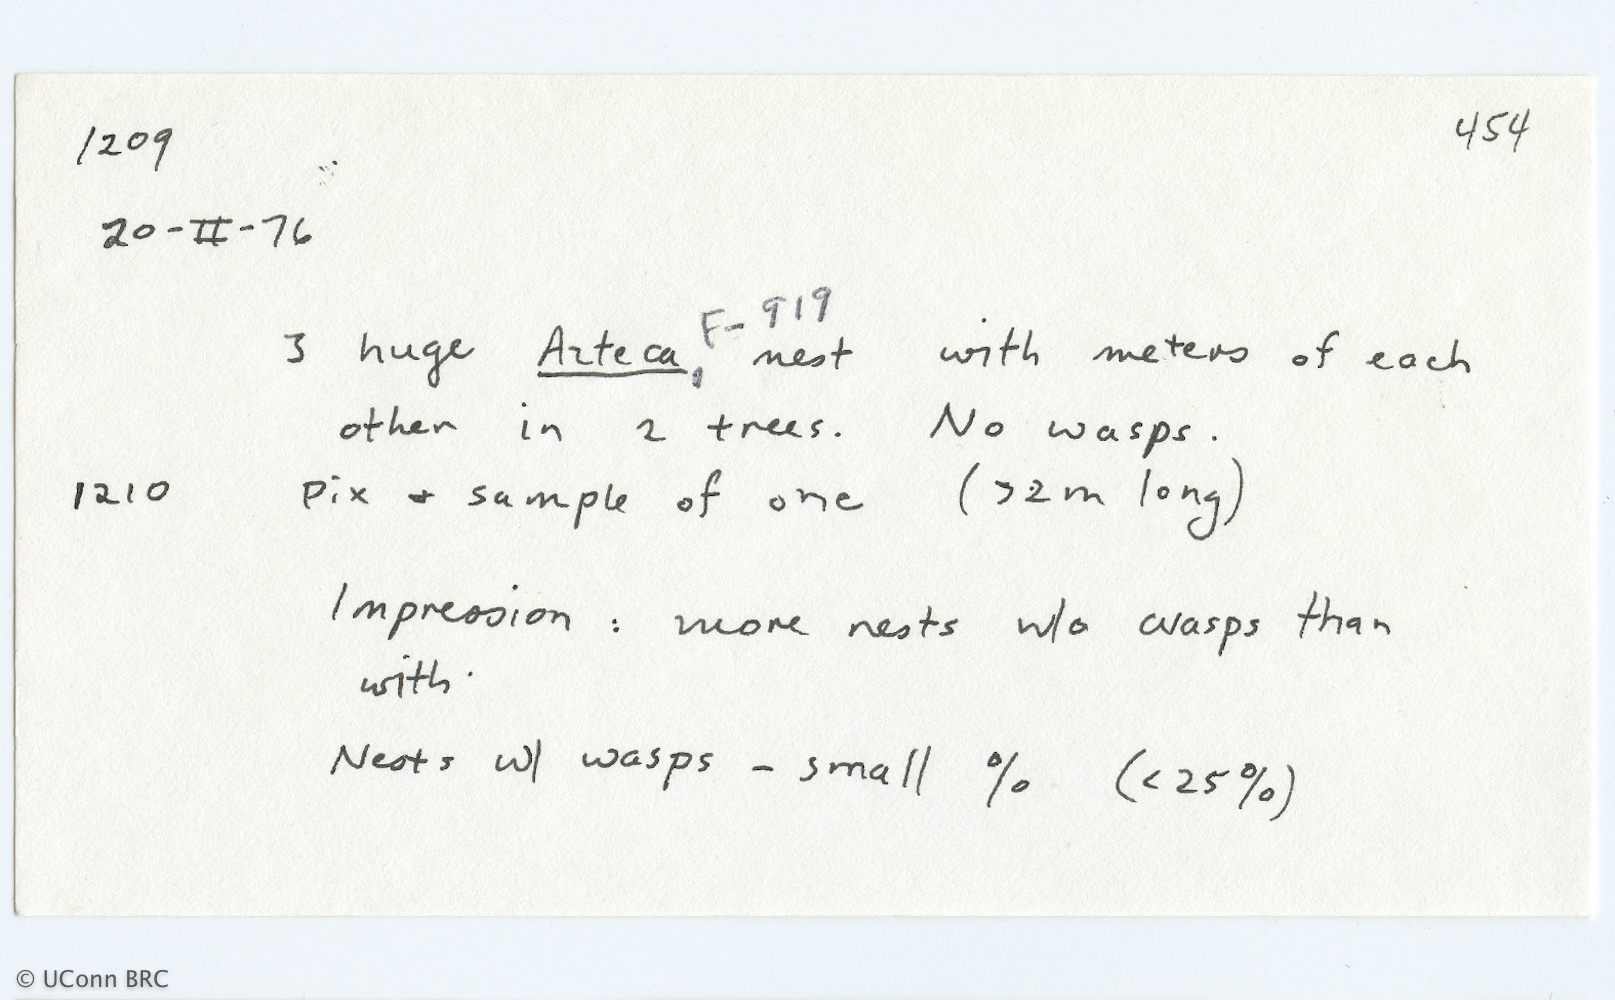 1209
454
20-II-76
3 huge Azteca, F-919 nest with meters of each
other in 2 trees. No wasps.
1210 Pix + sample of one (>2m long)
Impression: more nests w/o wasps than
with.
Nests w/ wasps - small % (<25%)
© UConn BRC